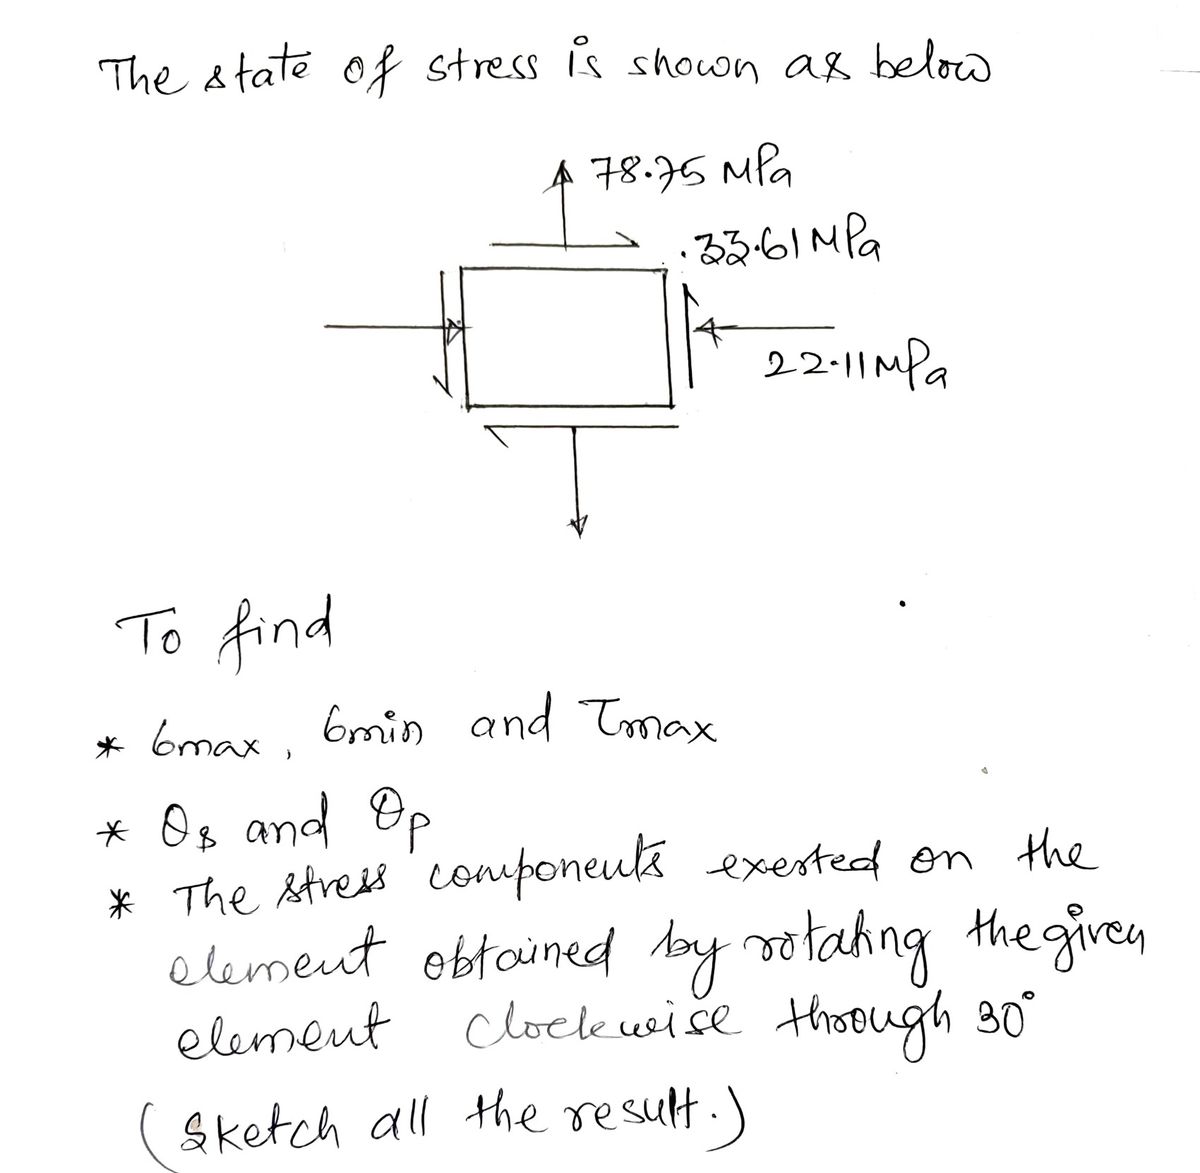 The state of stress is shown as below
78.75 MPa
.33.61 MPa
22.11 MPa
To find
* σmax, σmin and τmax
* θs and θp
* The stress components exerted on the
element obtained by rotating the given
element clockwise through 30°
(Sketch all the result.)